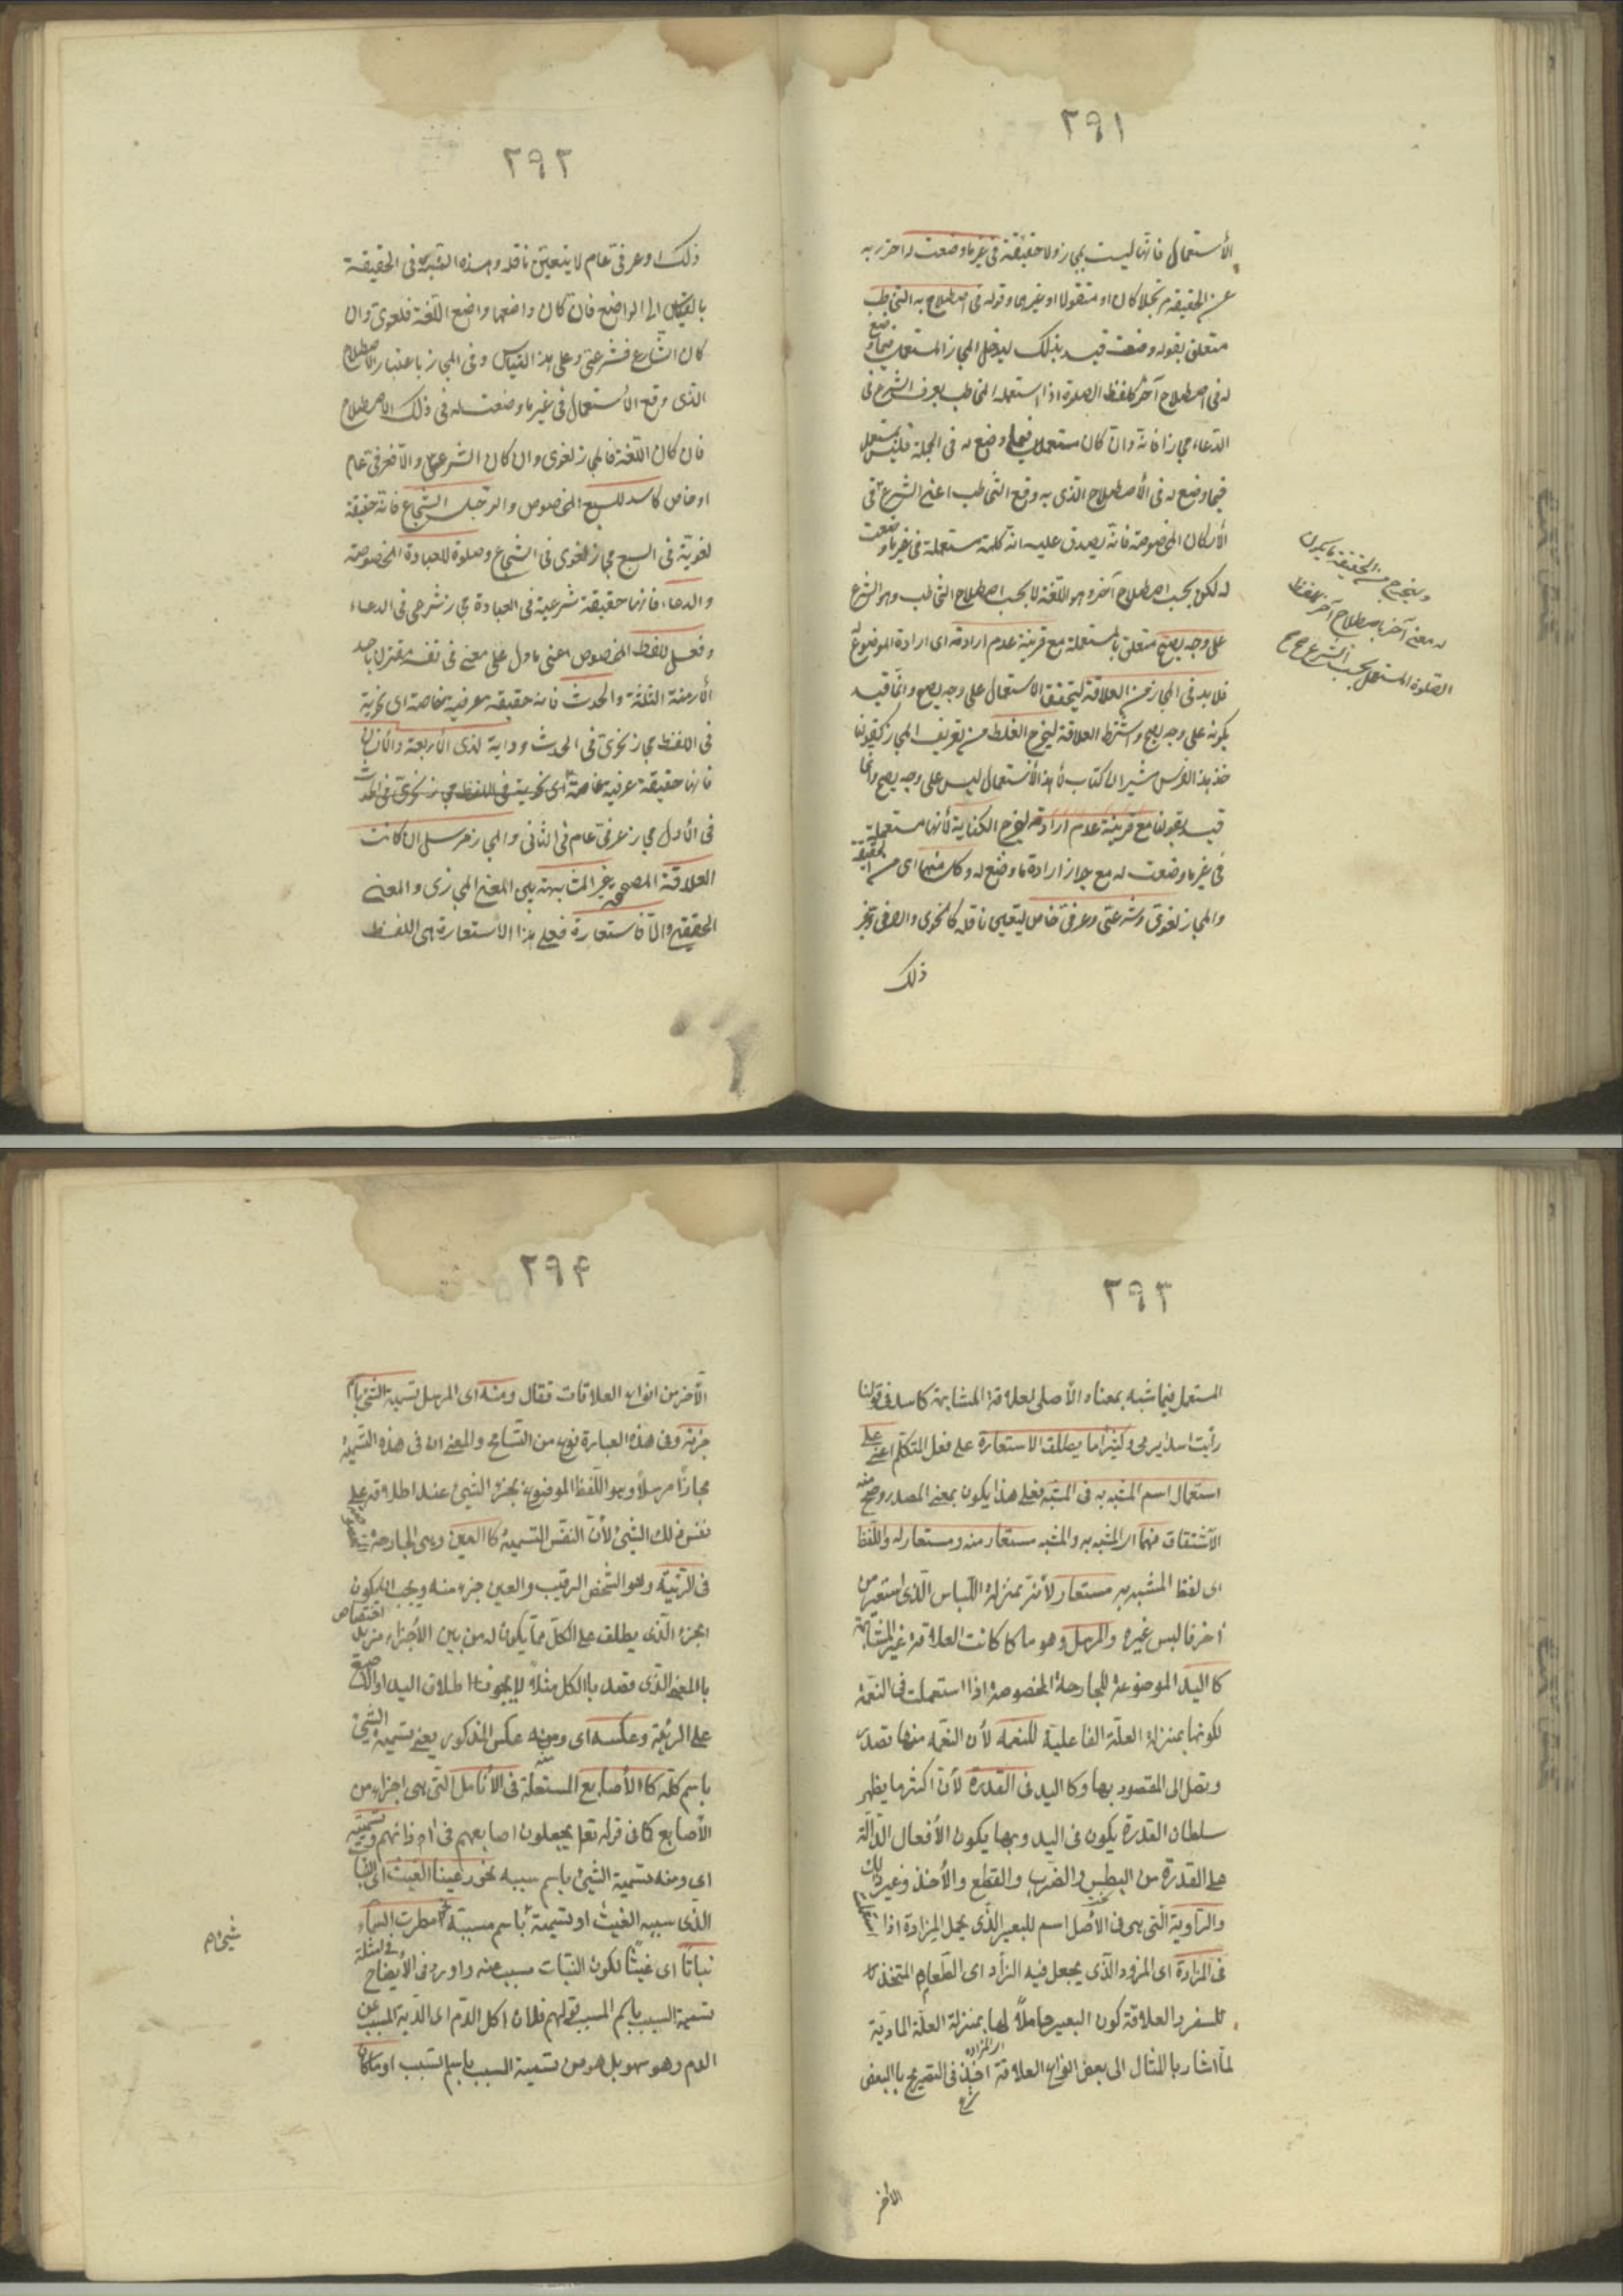 ٢٩١
الأستعمال فانها ليست بمجاز ولا حقيقة وقوله في غير ما وضعت له احترز به
عن الحقيقة مرتجلا كان او منقولا او غيرهما وقوله في اصطلاح به التخاطب
متعلق بقوله وضعت قيد بذلك ليدخل المجاز المستعمل فيما وضع
له في اصطلاح آخر كلفظ الصلوة اذا استعمله المخاطب بعرف الشرع في
الدعاء مجازا فانه وان كان مستعملا فيما وضع له في الجملة فليس بمستعمل
فيما وضع له في الأصطلاح الذى به وقع التخاطب اعنى الشرع في
الأركان المخصوصة فانه يصدق عليه انه كلمة مستعملة في غير ما وضعت
له لكن بحسب اصطلاح آخر وهو اللغة لا بحسب اصطلاح التخاطب وهو الشرع
على وجه يصح متعلق بالمستعملة مع قرينة عدم ارادته اى ارادة الموضوع له
فلا بد في المجاز من العلاقة ليتحقق الاستعمال على وجه يصح وانما قيد
بكونه على وجه يصح واشترط العلاقة ليخرج الغلط من تعريف المجاز كقولنا
خذ هذا الفرس مشيرا الى كتاب لأن هذا الأستعمال ليس على وجه يصح وانما
قيد بقولنا مع قرينة عدم ارادته ليخرج الكناية لأنها مستعملة
في غير ما وضعت له مع جواز ارادة ما وضع له وكل منهما اى من الحقيقة
والمجاز لغوى وشرعى وعرفى خاص يتعين ناقله كالنحوى والصرفى وغير
ذلك
ويخرج من الحقيقة ما يكون
له معنى آخر باصطلاح آخر كلفظ
الصلوة المستعمل بحسب الشرع
٢٩٢
ذلك او عرفى عام لا يتعين ناقله وهذه النسبة في الحقيقة
بالقياس الى الواضع فان كان واضعها واضع اللغة فلغوى وان
كان الشارع فشرعى وعلى هذا القياس وفى المجاز باعتبار الاصطلاح
الذى وقع الأستعمال في غير ما وضعت له في ذلك الاصطلاح
فان كان اللغة فالمجاز لغوى وان كان الشرع فشرعى والا فعرفى عام
او خاص كاسد للسبع المخصوص والرجل الشجاع فانه حقيقة
لغوية في السبع مجاز لغوى في الشجاع وصلوة للعبادة المخصوصة
والدعاء فانها حقيقة شرعية في العبادة مجاز شرعى في الدعاء
وفعل للفظ المخصوص اعنى ما دل على معنى في نفسه مقترن باحد
الأزمنة الثلثة والحدث فانه حقيقة عرفية خاصة اى نحوية
في اللفظ مجاز نحوى في الحدث ودابة لذى الأربعة والأنسان
فانها حقيقة عرفية عامة
في الأول مجاز عرفى عام في الثانى والمجاز مرسل ان كانت
العلاقة المصححة غير المشابهة بين المعنى المجازى والمعنى
الحقيقى والا فاستعارة فعلى هذا الأستعارة هى اللفظ
٢٩٣
المستعمل فيما شبه بمعناه الأصلى لعلاقة المشابهة كاسد في قولنا
رأيت اسدا يرمى وكثيرا ما يطلق الاستعارة على فعل المتكلم اعنى على
استعمال اسم المشبه به في المشبه فعلى هذا يكون بمعنى المصدر وصح منه
الأشتقاق فهما اى المشبه به والمشبه مستعار منه ومستعار له واللفظ
اى لفظ المشبه به مستعار لأنه بمنزلة اللباس الذى استعير من
احد فالبس غيره والمرسل وهو ما كا كانت العلاقة غير المشابهة
كا اليد الموضوعة للجارحة المخصوصة اذا استعملت في النعمة
لكونها بمنزلة العلة الفاعلية للنعمة لأن النعمة منها تصدر
وتصل الى المقصود بها وكا اليد فى القدرة لأن اكثر ما يظهر
سلطان القدرة يكون فى اليد وبها يكون الأفعال الدالة
على القدرة من البطش والضرب والقطع والأخذ وغير ذلك
والراوية التى هى فى الأصل اسم للبعير الذى يحمل المزادة اذا استعمل
فى المزادة اى المزود الذى يجعل فيه الزاد اى الطعام المتخذ
للسفر والعلاقة كون البعير حاملا لها بمنزلة العلة المادية
لما اشار با المثال الى بعض انواع العلاقة اخذ فى التصريح با البعض
الآخر
٢٩۴
الآخر من انواع العلاقات فقال ومنه اى المرسل تسمية الشئ باسم
جزئه وفى هذه العبارة نوع من التسامح والمعنى ان فى هذه التسمية
مجازا مرسلا وهو اللفظ الموضوع بجزء الشيئ عند اطلاقه على
نفس ذلك الشيئ لأن النفس التسمية كا العين وهى الجارحة
فى الربيئة وهو الشخص الرقيب والعين جزء منه ويجب ان يكون
الجزء الذى يطلق على الكل مما يكون له من بين الأجزاء مزيد اختصاص
با المعنى الذى قصد با الكل مثلا لا يجوز اطلاق اليد او الأصبع
على الربئة وعكسه اى ومنه عكس المذكور يعنى تسمية الشئ
باسم كله كا الأصابع المستعملة فى الأنامل التى هى اجزاء من
الأصابع كا فى قوله تعا يجعلون اصابعهم فى اذانهم وتسميته
اى ومنه تسمية الشيئ باسم سببه نحو رعينا الغيث اى النبات
الذى سببه الغيث او تسمية باسم مسببه نحو امطرت السماء
نباتا اى غيثا لكون النبات مسبب عنه واورد فى الأيضاح فى امثلة
تسمية السبب باسم المسبب قولهم فلان اكل الدم اى الدية المسبب عن
الدم وهو سهو بل هو من تسمية المسبب باسم السبب او ما كان